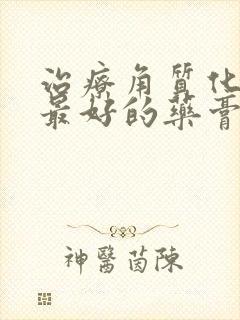 治療角質化
最好的藥膏
神醫茵陳